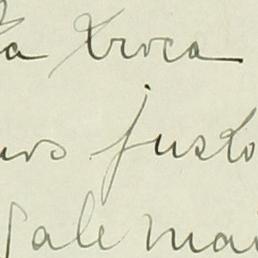 ta troca
urs justo
gale mai